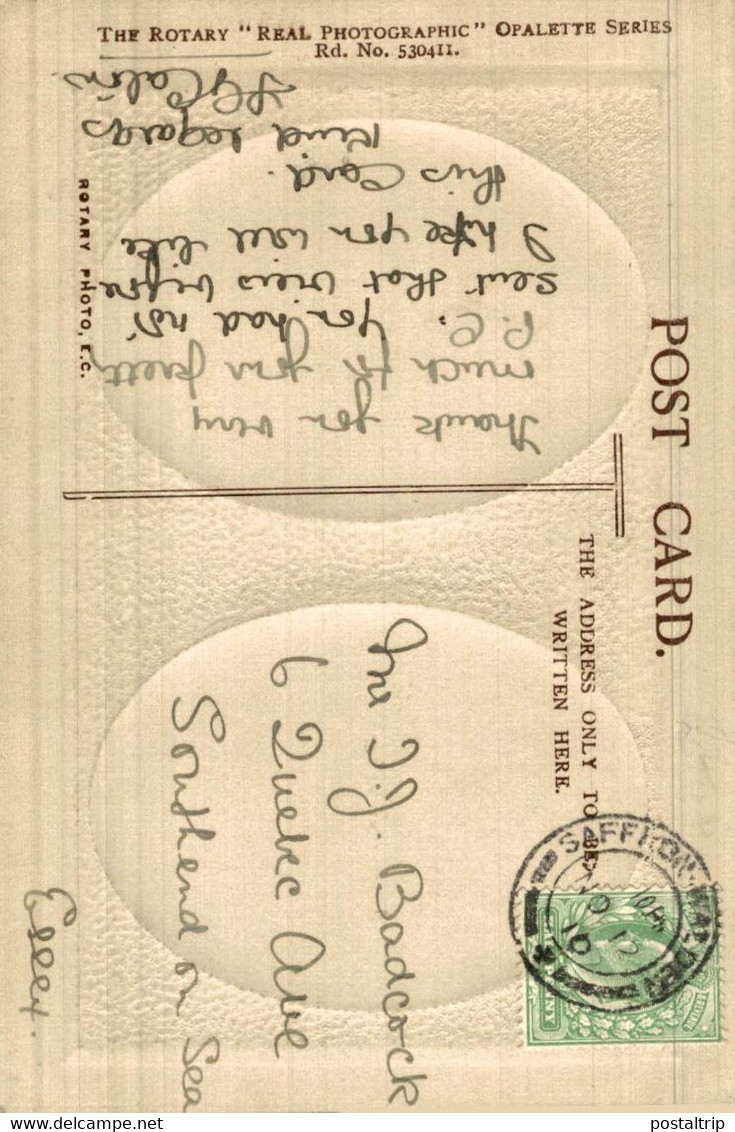 THE ROTARY "REAL PHOTOGRAPHIC" OPALETTE SERIES
Rd. No. 530411.
POST CARD.
THE ADDRESS ONLY TO BE
WRITTEN HERE.
ROTARY PHOTO, E.C.
Thank you very
much for your pretty
P.C. You had not
sent that view before
I hope you will like
this Card.
Kind regards
SAFFRON WALDEN
NO 12
10
T.J. Badcock
6 Quebec Ave
Southend on Sea
Essex.
postaltrip
delcampe.net